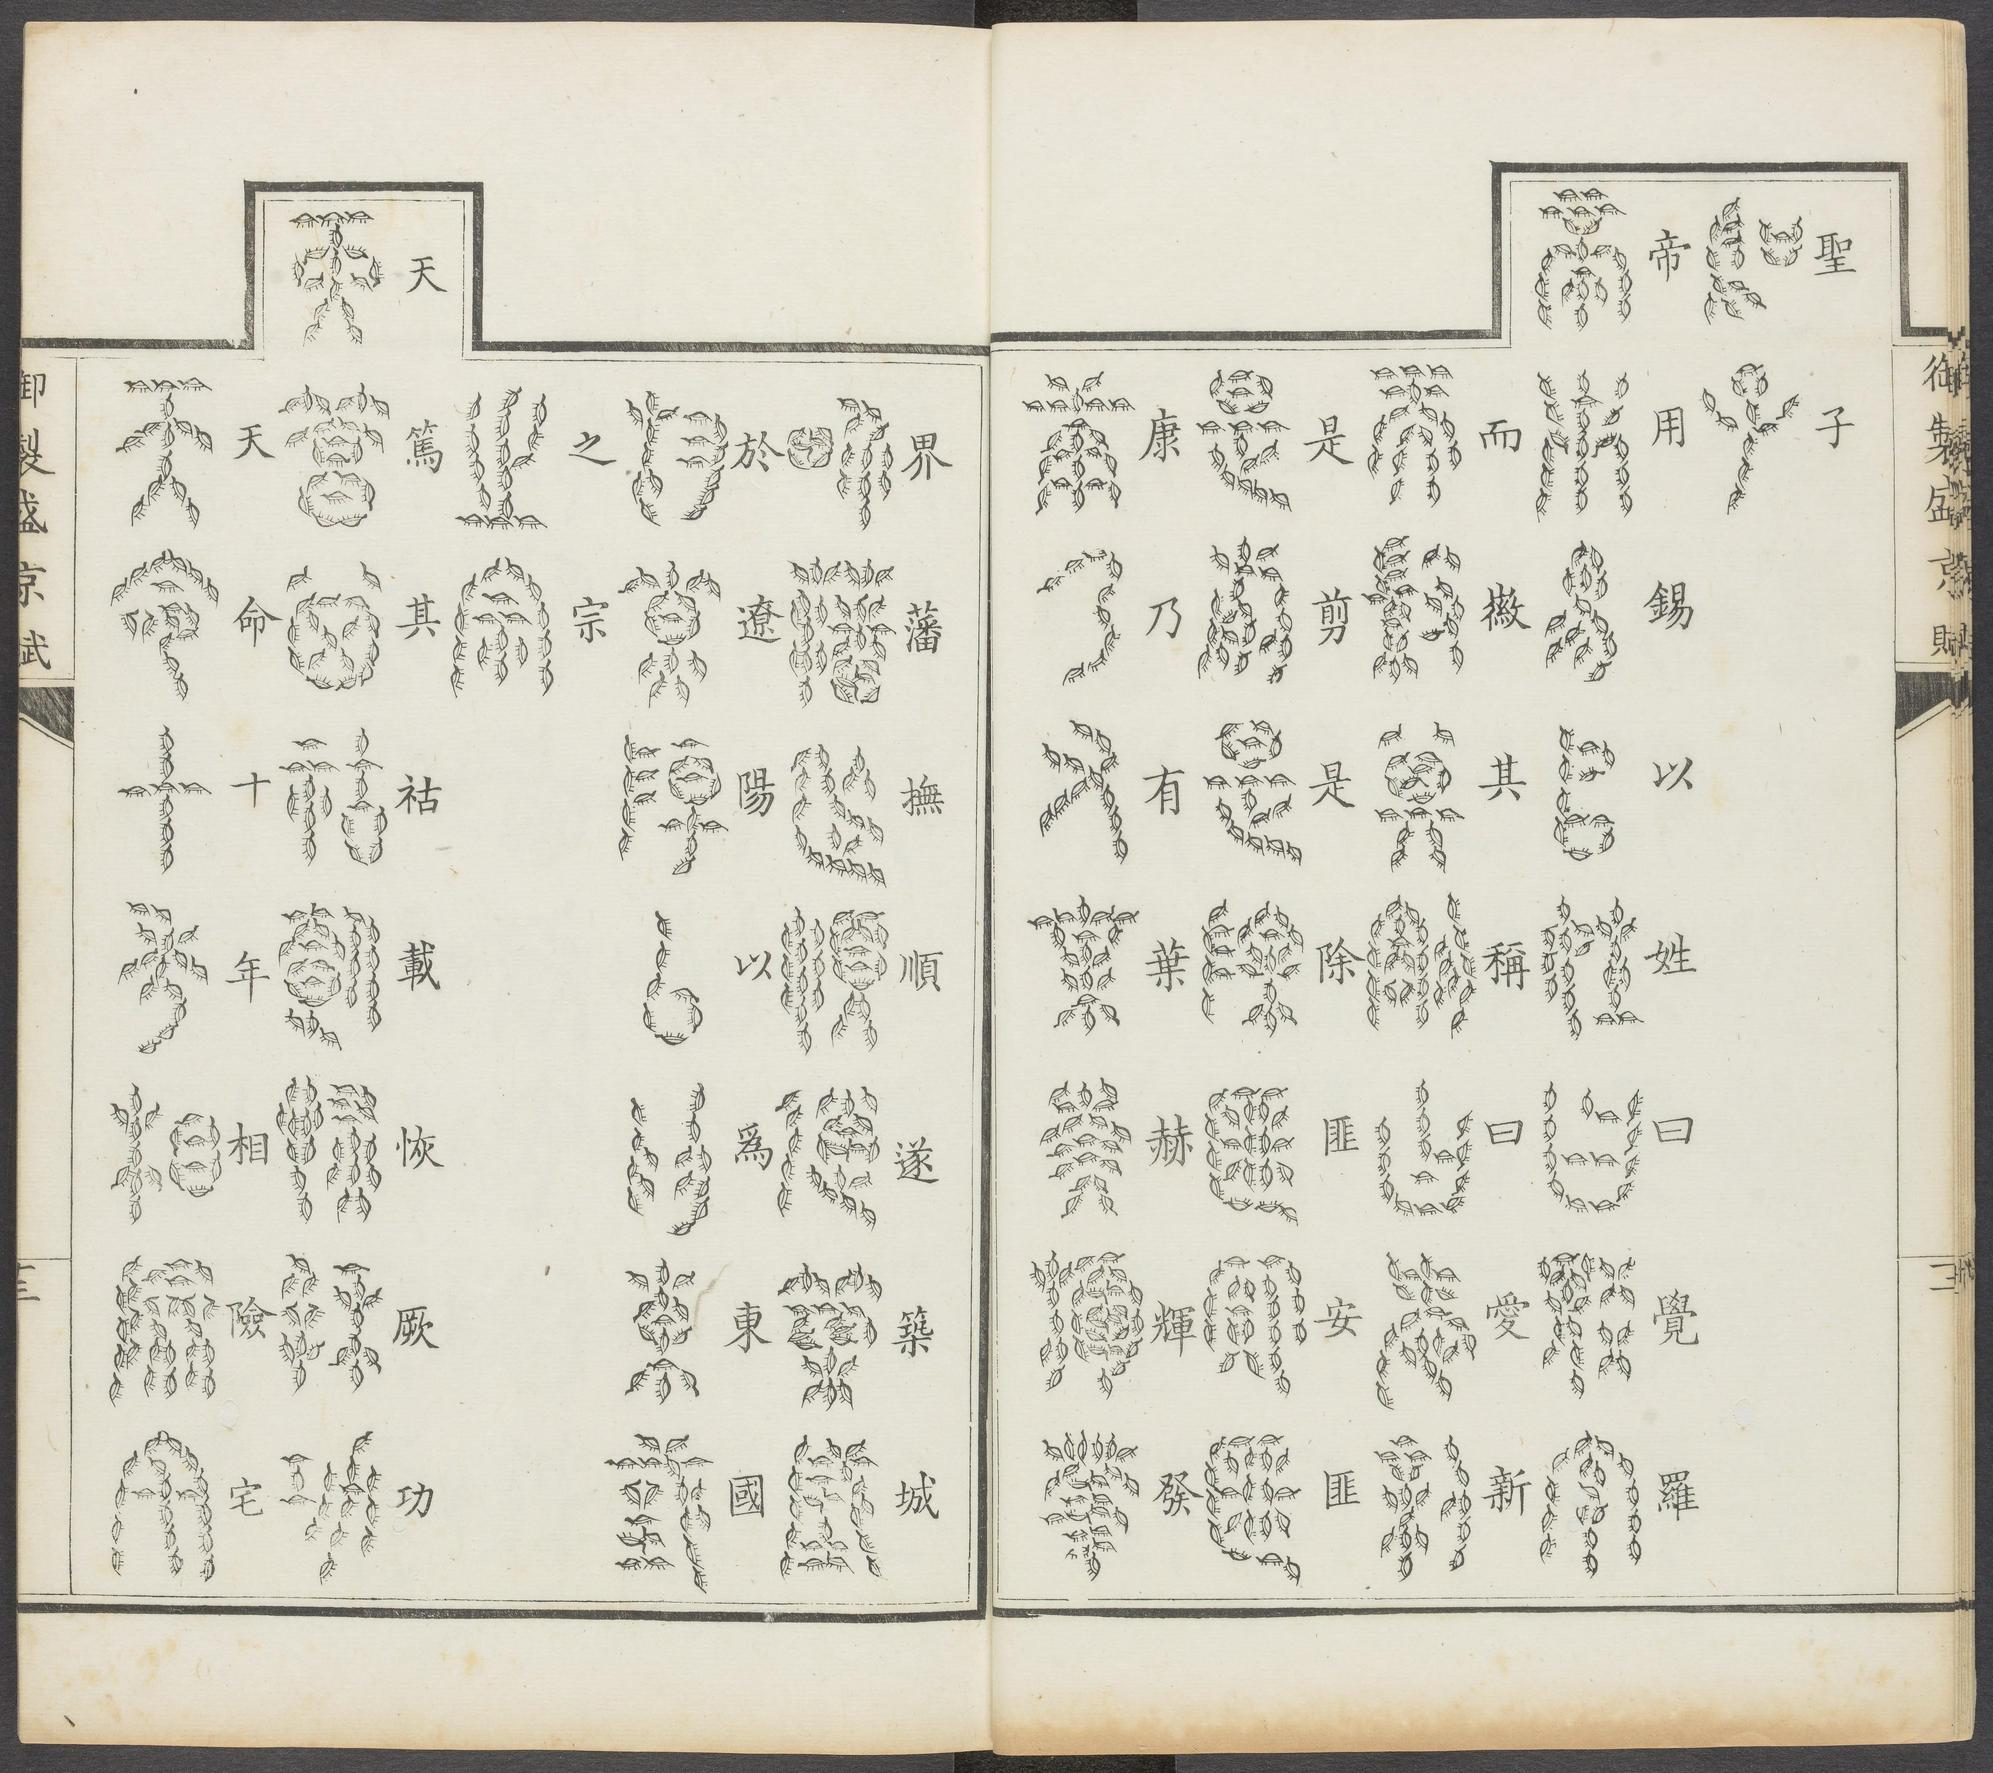 聖子
帝用錫以姓曰覺羅
而徽其稱曰愛新
是剪是除匪安匪
康乃有葉赫輝發
界藩撫順遂築城
於遼陽以爲東國
之宗
天篤其祜載恢厥功
天命十年相險宅
御製盛京賦
御製盛京賦